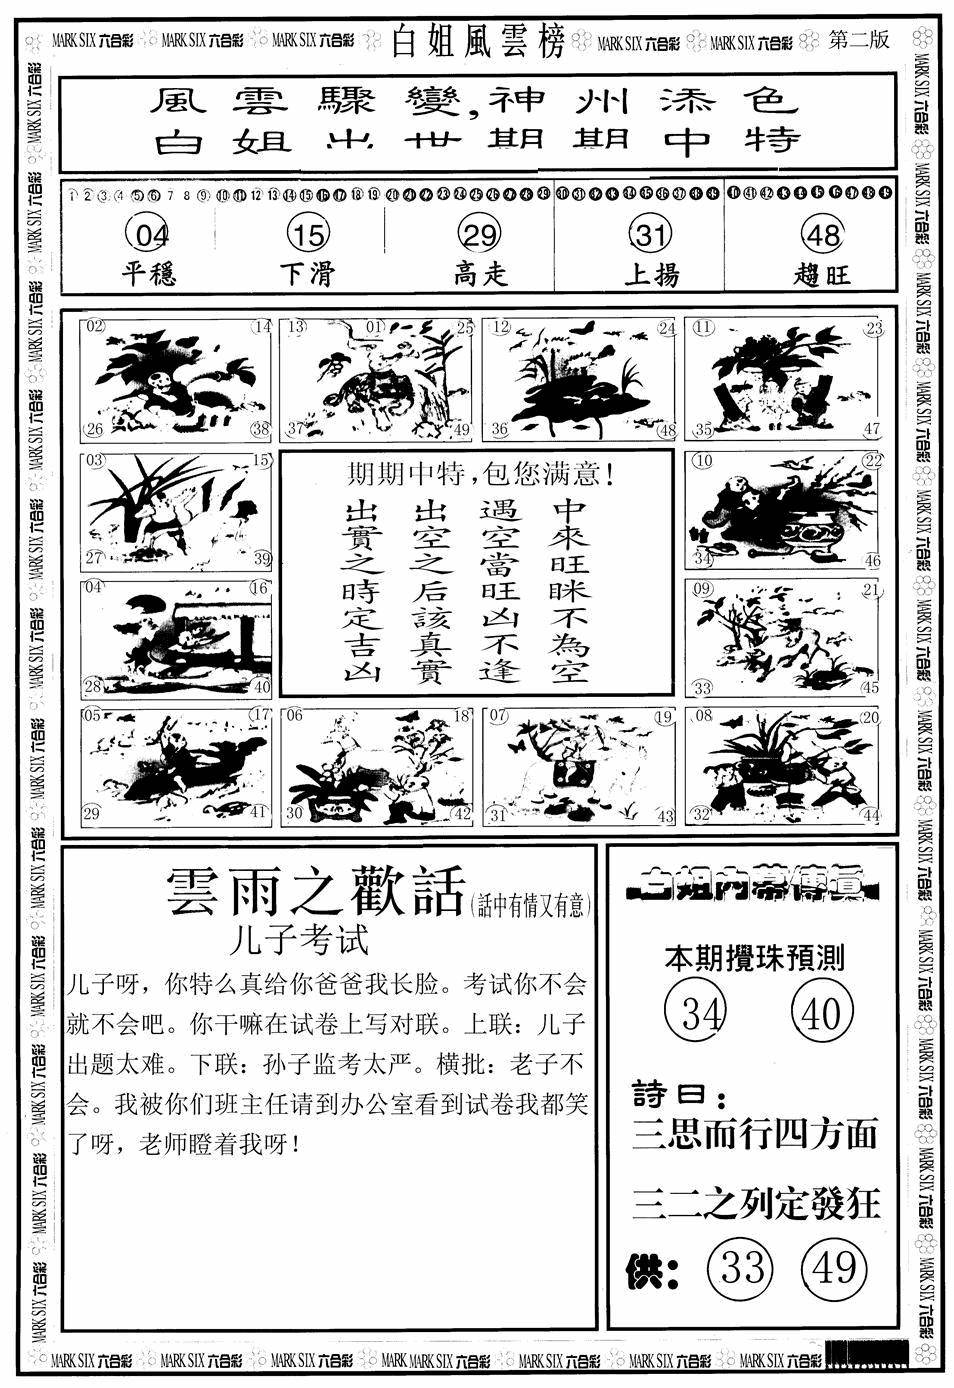 MARK SIX 六合彩 MARK SIX 六合彩 MARK SIX 六合彩 白姐風雲榜 MARK SIX 六合彩 MARK SIX 六合彩 第二版
風雲驟變,神州添色
白姐出世期期中特
1 2 3 4 5 6 7 8 9 10 11 12 13 14 15 16 17 18 19 20 21 22 23 24 25 26 27 28 29 30 31 32 33 34 35 36 37 38 39 40 41 42 43 44 45 46 47 48 49
04 15 29 31 48
平穩 下滑 高走 上揚 趨旺
02 14 13 01 25 12 24 11 23
26 38 37 49 36 48 35 47
03 15 10 22
27 39 34 46
04 16 09 21
28 40 33 45
05 17 06 18 07 19 08 20
29 41 30 42 31 43 32 44
期期中特,包您满意!
中來旺眯不為空
遇空當旺凶不逢
出空之后該真實
出實之時定吉凶
雲雨之歡話(話中有情又有意)
儿子考试
儿子呀，你特么真给你爸爸我长脸。考试你不会
就不会吧。你干嘛在试卷上写对联。上联：儿子
出题太难。下联：孙子监考太严。横批：老子不
会。我被你们班主任请到办公室看到试卷我都笑
了呀，老师瞪着我呀！
白姐内幕傳真
本期攪珠預測
34 40
詩曰：
三思而行四方面
三二之列定發狂
供： 33 49
MARK SIX 六合彩 MARK SIX 六合彩 MARK SIX 六合彩 MARK MARK SIX 六合彩 MARK SIX 六合彩 MARK SIX 六合彩 MARK SIX 六合彩